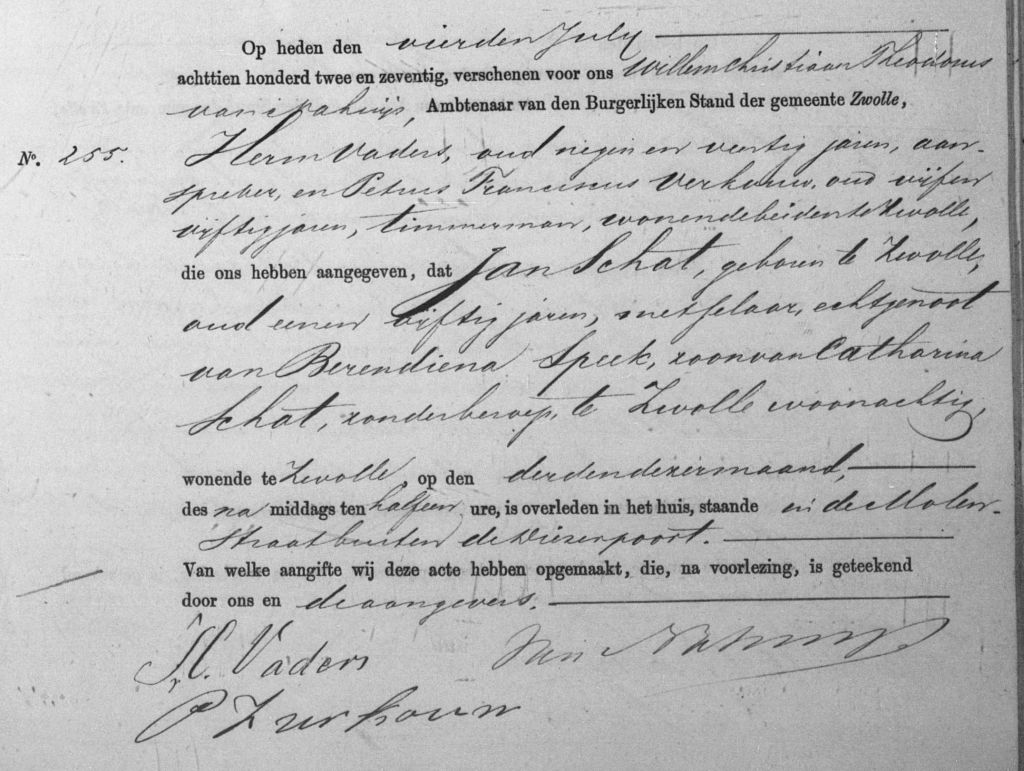 Op heden den vierden July
achttien honderd twee en zeventig, verschenen voor ons Willem Christiaan Theodorus
van , Ambtenaar van den Burgerlijken Stand der gemeente Zwolle,
No. 255. Herm Vaders, oud negen en veertig jaren, aan-
spreker, en Petrus Franciscus Verkouw, oud vijf en
vijftig jaren, timmerman, wonende beiden te Zwolle,
die ons hebben aangegeven, dat Jan Schat, geboren te Zwolle,
oud een en vijftig jaren, metselaar, echtgenoot
van Berendiena Speek, zoon van Catharina
Schat, zonder beroep, te Zwolle woonachtig,
wonende te Zwolle, op den derden dezer maand,
des na middags ten half een ure, is overleden in het huis, staande in de Molen-
straat buiten de Diezerpoort.
Van welke aangifte wij deze acte hebben opgemaakt, die, na voorlezing, is geteekend
door ons en de aangevers.
H. Vaders Van
P